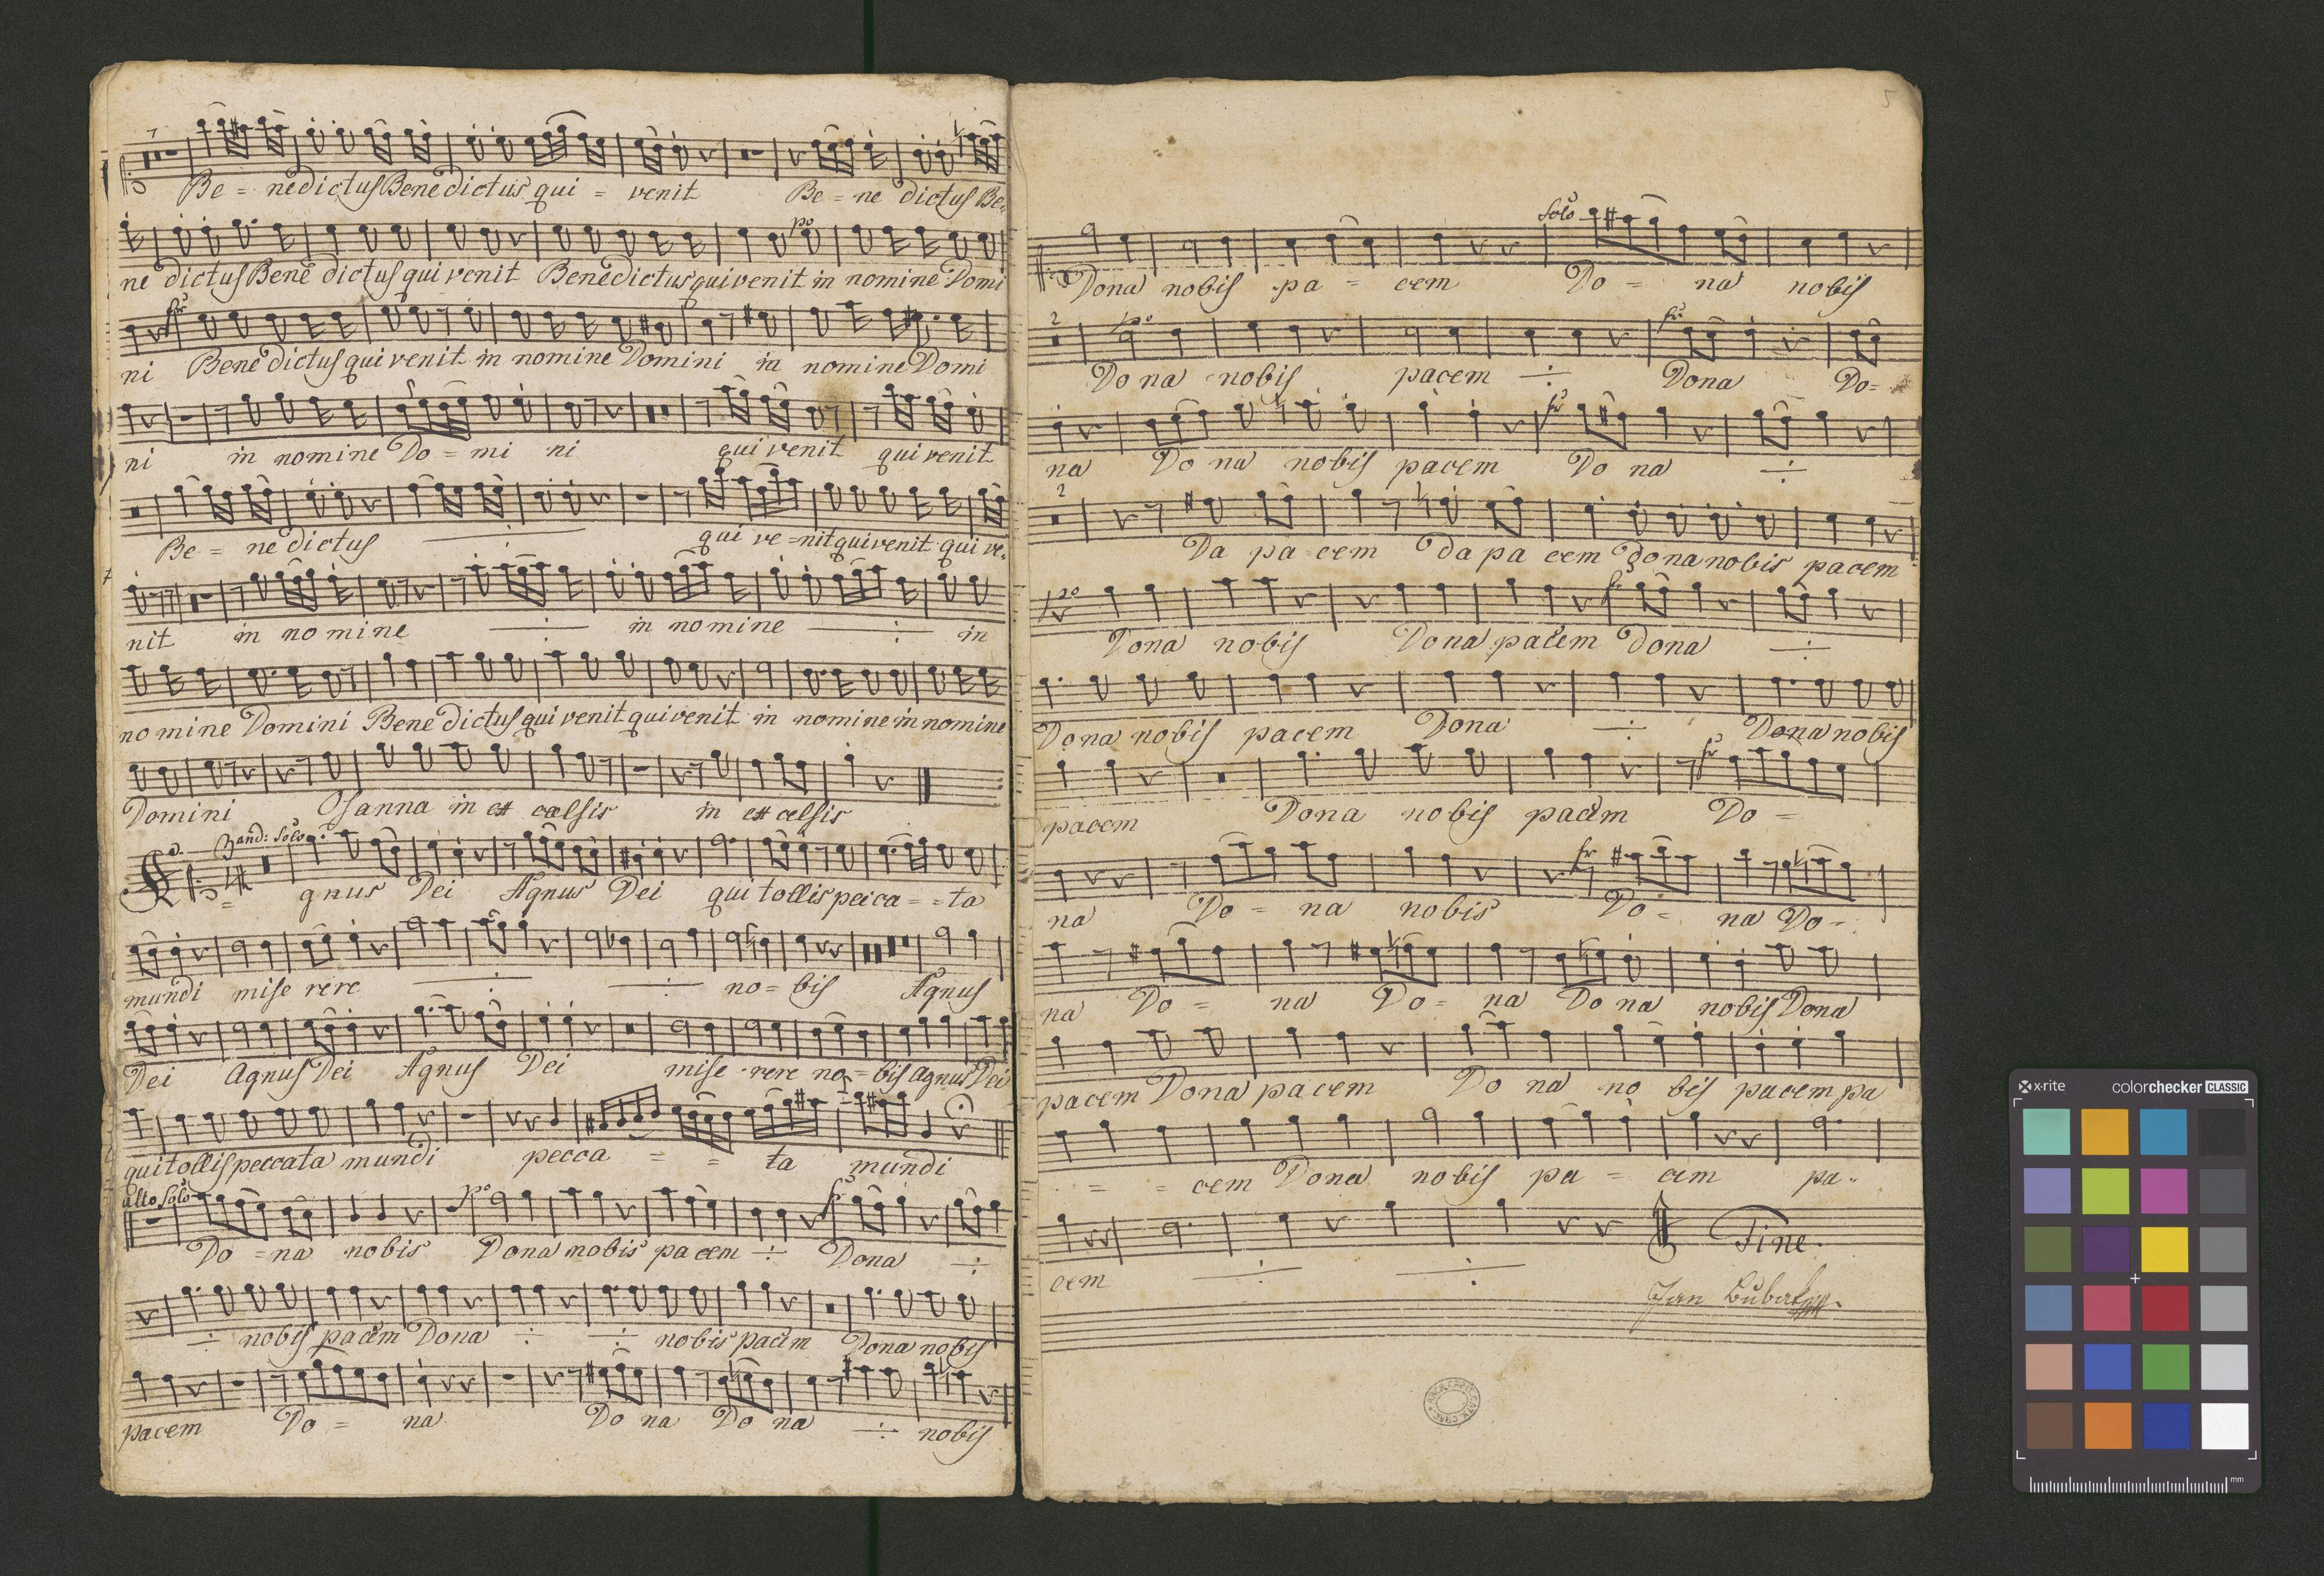 7
Be = nedictus Benedictus qui = venit Be = ne dictus Be=
ne dictus Bene dictus qui venit Benedictus qui venit in nomine Domi
po
ni Benedictus qui venit in nomine Domini in nomine Domi
ni in nomine Do = mi ni qui venit qui venit
Be = ne dictus ÷ qui ve = nit qui venit qui ve=
nit in nomine ÷ in nomine ÷ in
nomine Domini Benedictus qui venit qui venit in nomine in nomine
Domini Osanna in ex cœlsis in ex celsis
And: Solo
gnus Dei Agnus Dei qui tollis pecca = = ta
mundi mise rere ÷ ÷ no = bis Agnus
Dei Agnus Dei Agnus Dei mise rere no = bis agnus Dei
qui tollis peccata mundi pecca = = ta mundi
alto Solo po
Do = na nobis Dona nobis pacem ÷ Dona ÷
÷ nobis pacem Dona ÷ ÷ nobis pacem Dona nobis
pacem Do = na Do na Do na ÷ nobis
5
Solo
Dona nobis pa = cem Do = na nobis
2 po
Dona nobis pacem ÷ Dona Do=
na Dona nobis pacem Do na ÷
2
Da pa cem Da pa cem dona nobis pacem
po
Dona nobis Dona pacem dona ÷
Dona nobis pacem Dona ÷ Dona nobis
pacem Dona nobis pacem Do =
na Do = na nobis Do = na Do =
na Do = na Do = na Do na nobis Dona
pacem Dona pacem Do na no bis pacem pa
= = cem Dona nobis pa = cem pa=
cem ÷ ÷ Fine.
Jan
x-rite colorchecker CLASSIC
mm